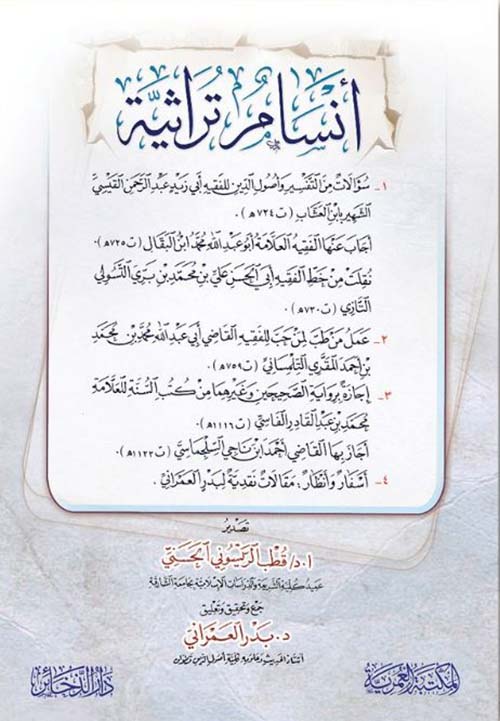 أنسام تراثية
١ - سُؤَالَاتٌ مِنَ التَّفْسِيرِ وَأُصُولِ الدِّينِ لِلْفَقِيهِ أَبِي زَيْدٍ عَبْدِ الرَّحْمَنِ القَيْسِيِّ
الشَّهِيرِ بِابْنِ العَشَّابِ (ت ٧٢٤هـ).
أَجَابَ عَنْهَا الْفَقِيهُ الْعَلَّامَةُ أَبُو عَبْدِ اللهِ مُحَمَّدٌ ابْنُ الْبَقَّالِ (ت ٧٢٥هـ).
نُقِلَتْ مِنْ خَطِّ الفَقِيهِ أَبِي الْحَسَنِ عَلِيِّ بْنِ مُحَمَّدِ بْنِ بَرِّي التَّسُولِي
التَّازِي (ت ٧٣٠هـ).
٢ - عَمَلُ مَنْ طَبَّ لِمَنْ حَبَّ لِلْفَقِيهِ القَاضِي أَبِي عَبْدِ اللهِ مُحَمَّدِ بْنِ مُحَمَّدِ
بْنِ أَحْمَدَ المَقَّرِي التِّلِمْسَانِي (ت ٧٥٩هـ).
٣ - إِجَازَةٌ بِرِوَايَةِ الصَّحِيحَيْنِ وَغَيْرِهِمَا مِنْ كُتُبِ السُّنَّةِ لِلْعَلَّامَةِ
مُحَمَّدِ بْنِ عَبْدِ القَادِرِ الفَاسِي (ت ١١١٦هـ).
أَجَازَ بِهَا القَاضِي أَحْمَدَ ابْنَ نَاجِي السِّجِلْمَاسِي (ت ١١٢٢هـ).
٤ - أَسْفَارٌ وَأَنْظَارٌ؛ مَقَالَاتٌ نَقْدِيَّةٌ لِبَدْرِ العَمْرَانِي.
تصدير
أ.د/ قطب الريسوني الحسني
عميد كلية الشريعة والدراسات الإسلامية بجامعة الشارقة
جمع وتحقيق وتعليق
د. بدر العمراني
أستاذ الحديث وعلومه بكلية أصول الدين تطوان
المكتبة العمرية
دار الذخائر